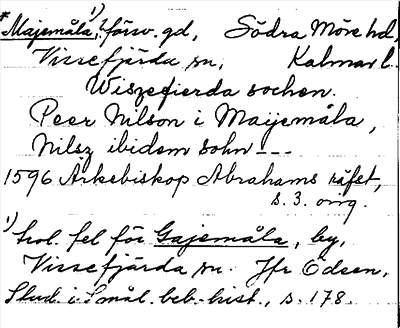 *Majemåla,¹⁾ ? försv. gd, Södra Möre hd,
Vissefjärda sn, Kalmar l.
Wiszefierda sochen.
Peer Nilson i Maijemåla,
Nilsz ibidem sohn ---
1596 Ärkebiskop Abrahams räfst,
s. 3. orig.
¹⁾ Trol. fel för Gajemåla, by,
Vissefjärda sn. Jfr Ödeen,
Stud. i Smål. beb.-hist., s. 178.